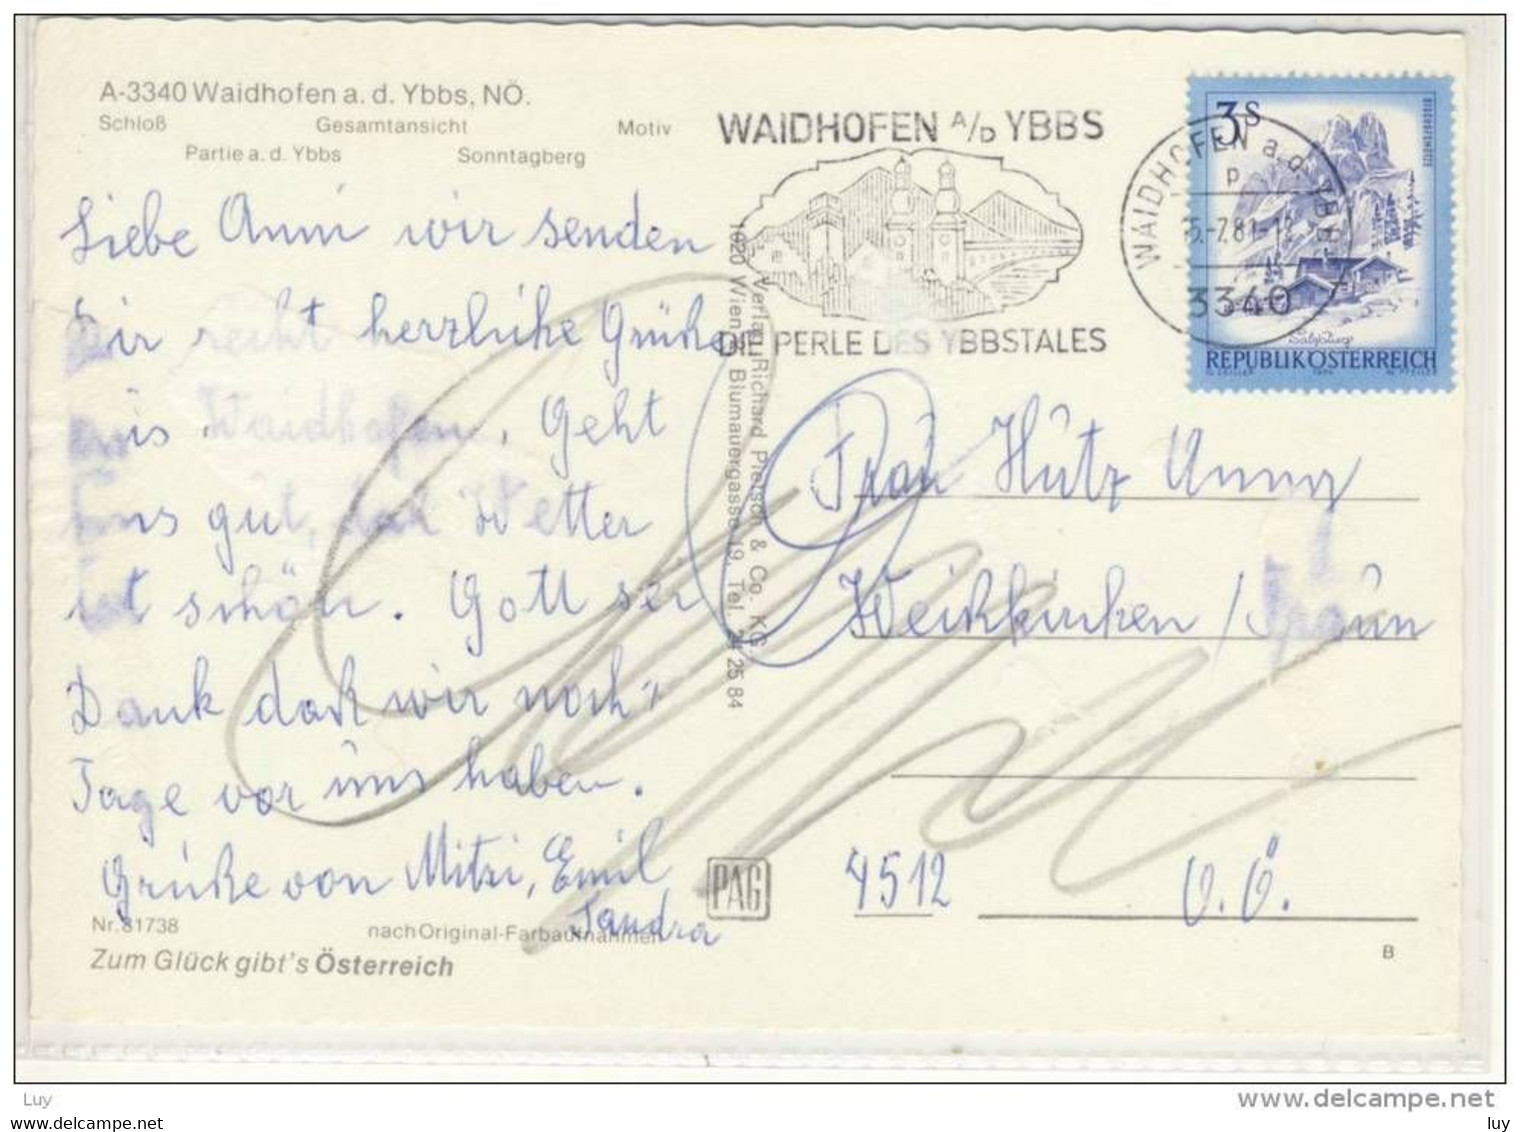 A-3340 Waidhofen a. d. Ybbs, NÖ.
Schloß Gesamtansicht Motiv
Partie a. d. Ybbs Sonntagberg
Liebe Anni wir senden
Dir recht herzliche Grüße
aus Waidhofen. Geht
uns gut, das Wetter
ist schön. Gott sei
Dank daß wir noch
Tage vor uns haben.
Grüße von Mitzi, Emil
Sandra
Nr. 81738
nach Original-Farbaufnahmen
Zum Glück gibt's Österreich
Verlag Richard Pietsch & Co. KG.
1020 Wien, Blumauergasse 19, Tel. 24 25 84
PAG
WAIDHOFEN A/D YBBS
DIE PERLE DES YBBSTALES
WAIDHOFEN a. d. YBBS
p
5.-7.81-12
3340
3 S
BISCHOFSMÜTZE
Salzburg
REPUBLIK ÖSTERREICH
Frau Hütz Anny
Weißkirchen / Traun
4512 O.Ö.
B
Luy
www.delcampe.net
luy.com
luy